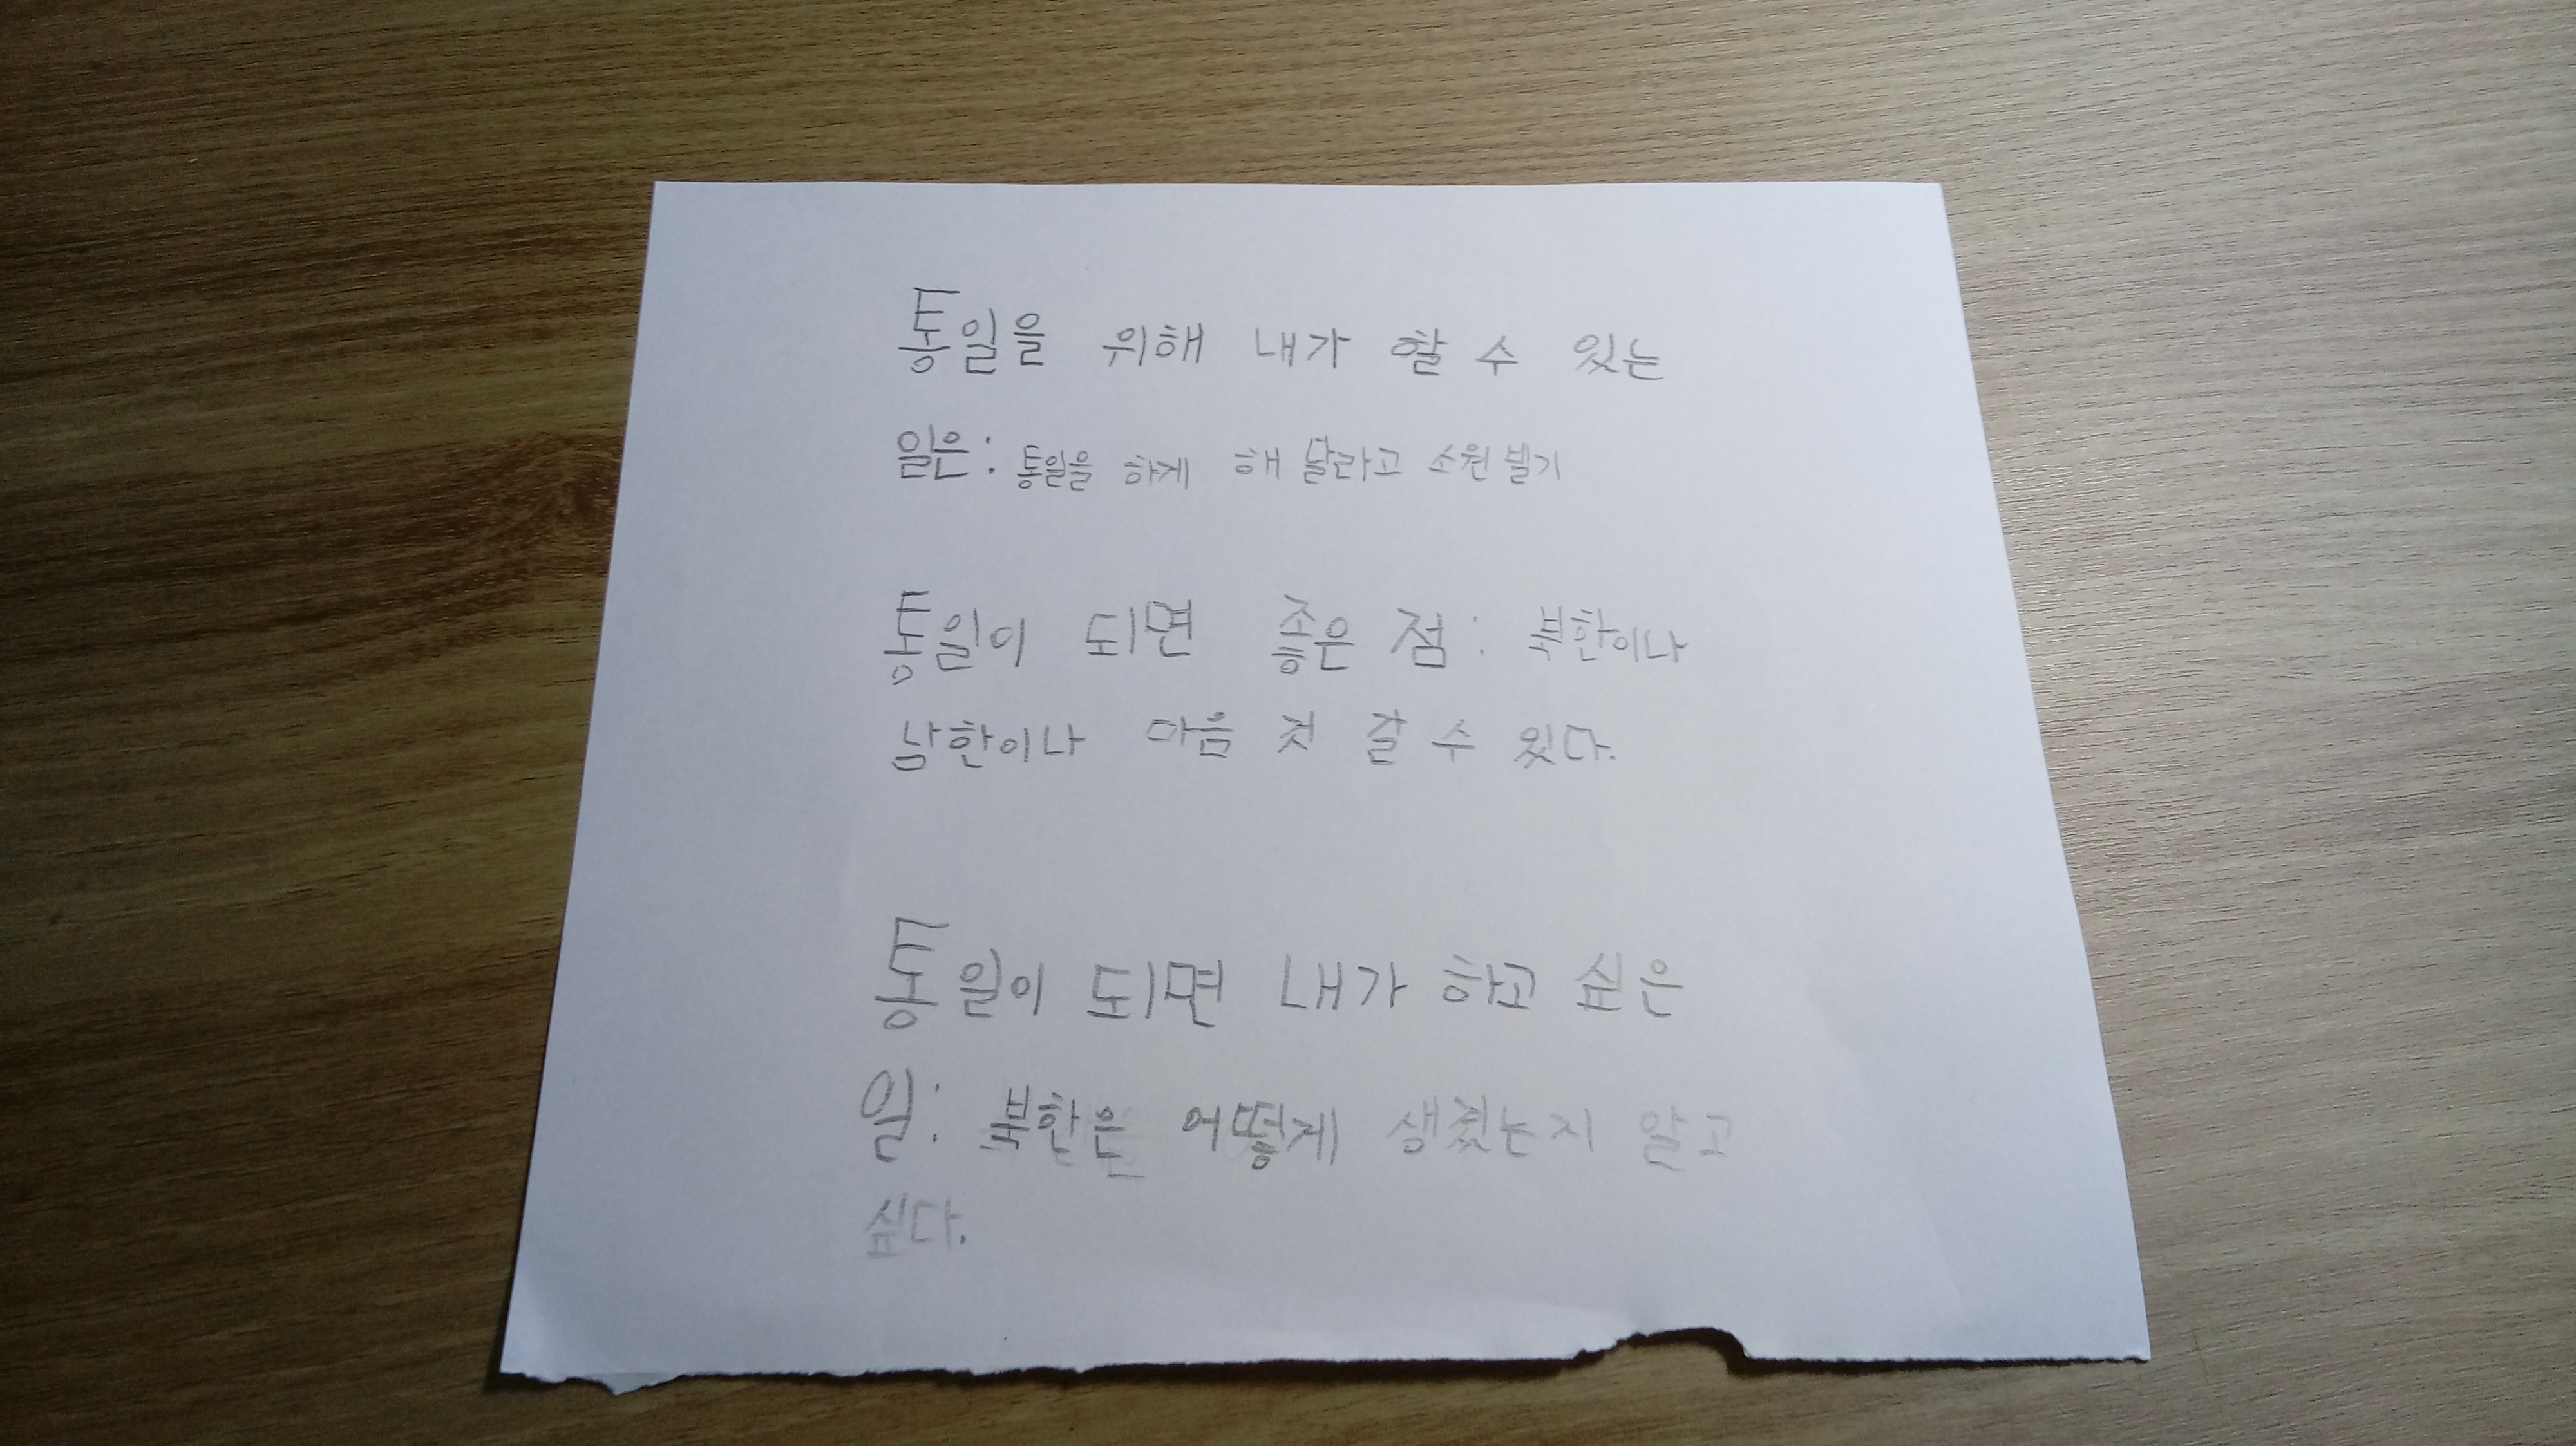 통일을 위해 내가 할 수 있는
일은: 통일을 하게 해 달라고 소원 빌기
통일이 되면 좋은 점: 북한이나
남한이나 마음 껏 갈 수 있다.
통일이 되면 내가 하고 싶은
일: 북한은 어떻게 생겼는지 알고
싶다.